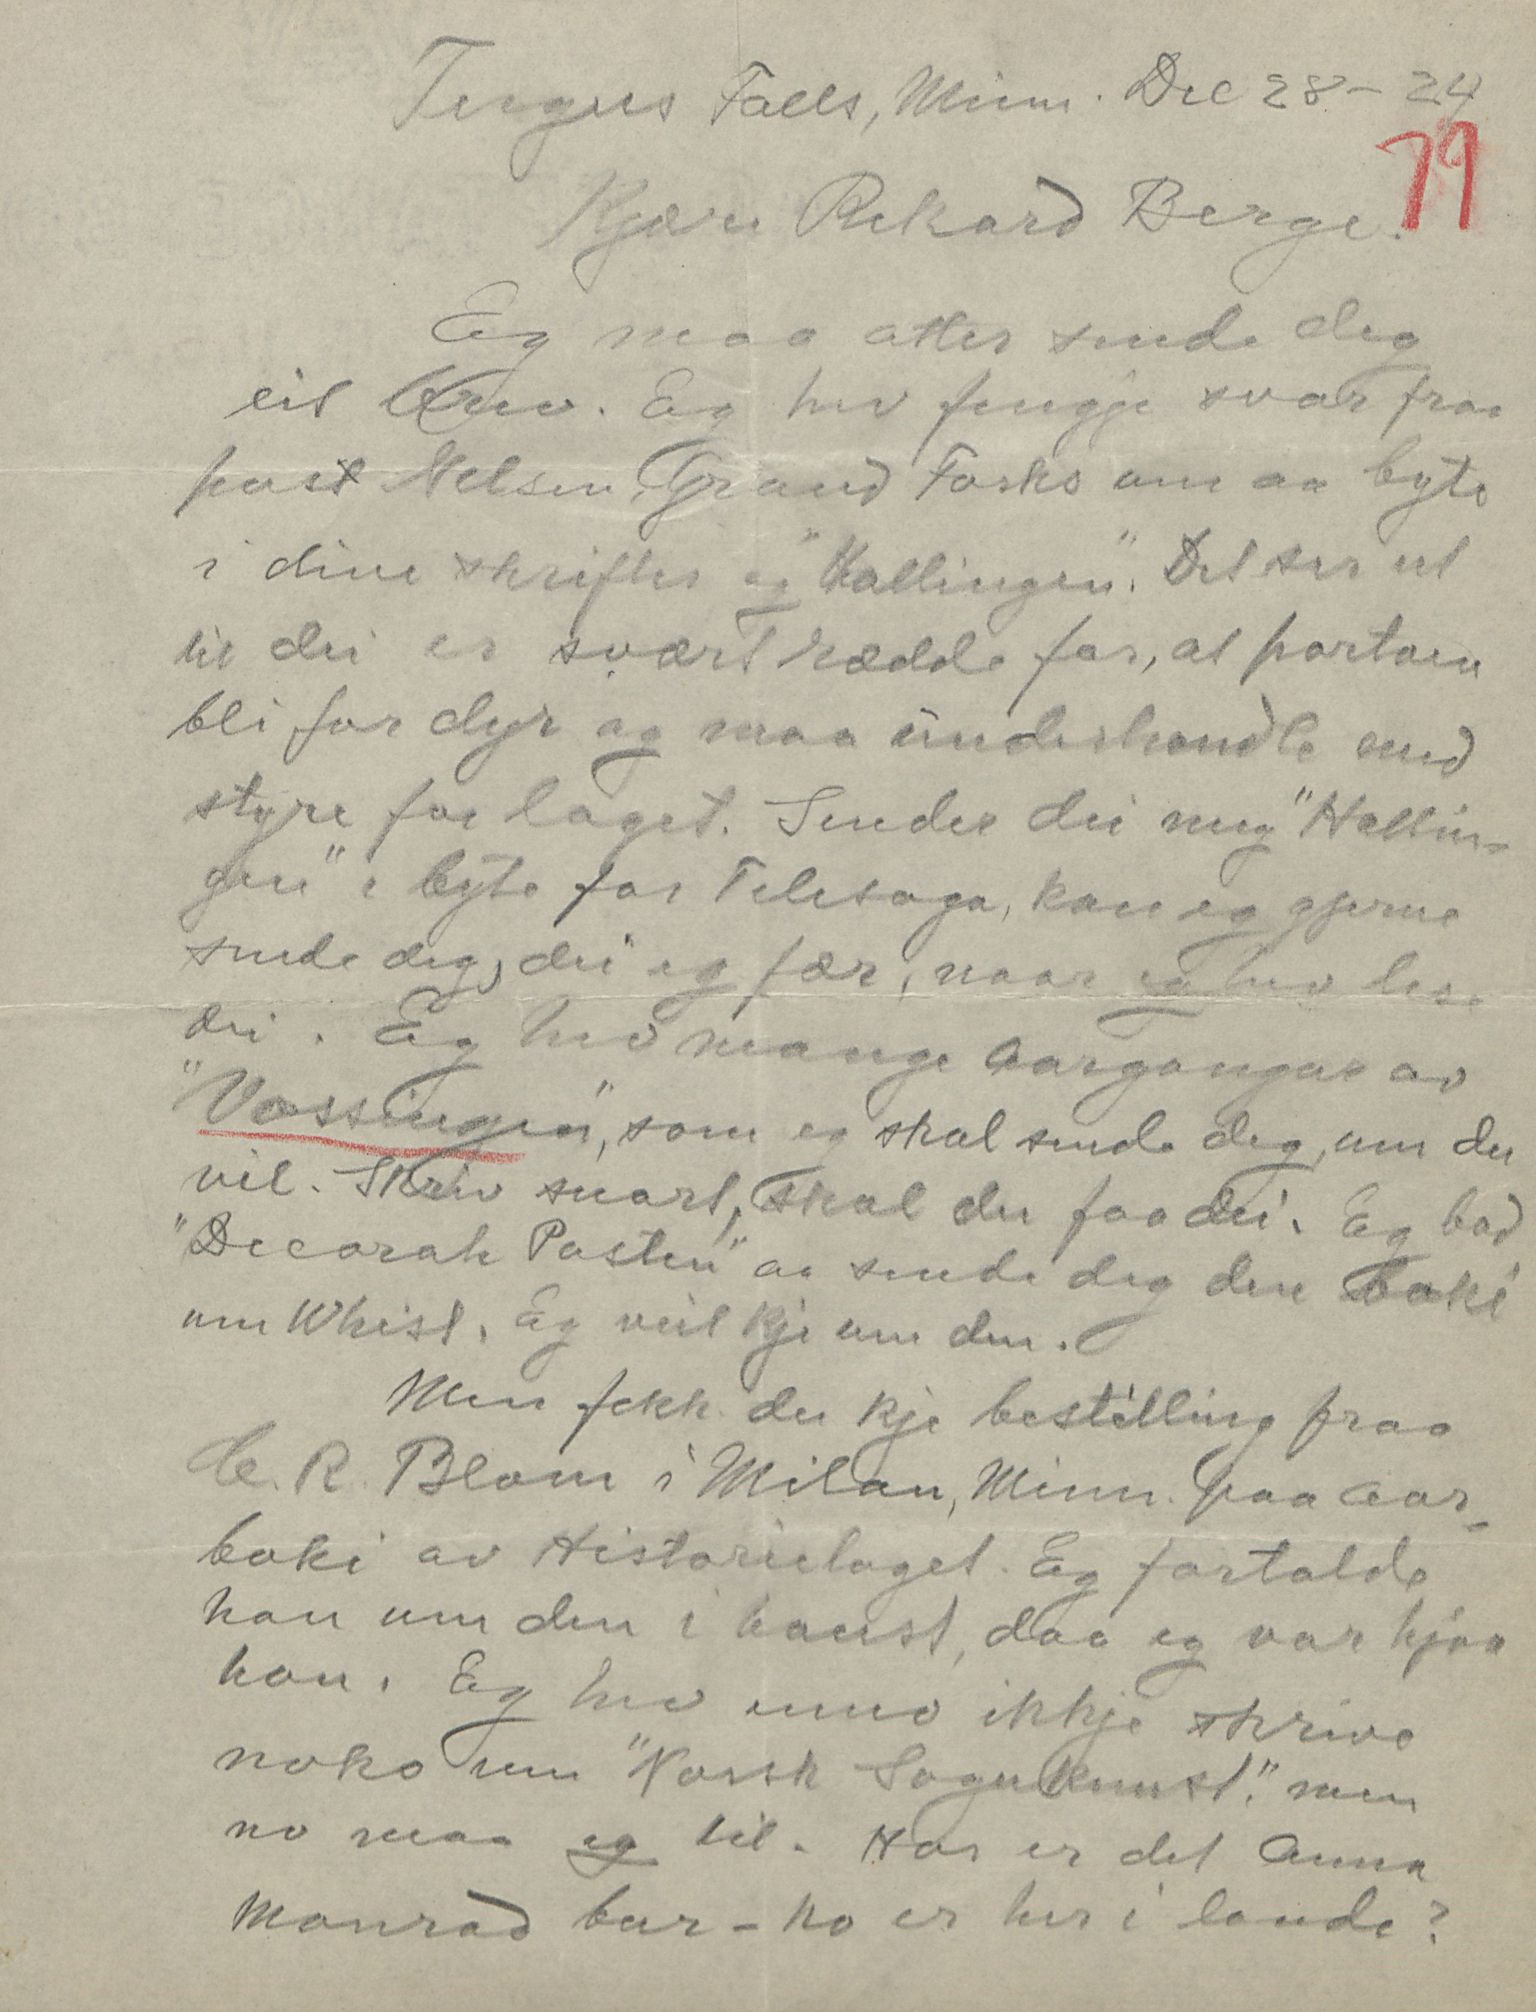 Fergus Falls, Minn. Dec 28 - 24
79
Kjære Rikard Berge.
Eg maa atter sende deg
eit brev. Eg hev fengje svar fraa
past Nelson, Grand Forks um aa byte
i dine skrifter og "Hallingen". Det ser ut
til dei er svært rædde for, at portoen
bli for dyr og maa underhandle med
styre for laget. Sender dei meg "Hallin-
gen" i byte for Telesoga, kan eg gjerne
sende deg, dei eg fær, naar eg hev lese
dei. Eg hev mange Aargangar av
"Vossingen", som eg skal sende deg, um du
vil. Skriv snart, skal du faa dei. Eg bad
"Decorah Posten" aa sende deg den boki
um Whist. Eg veit kje um den.
Men fekk du kje bestilling fraa
C. R. Blom i Milan, Minn. paa Aar-
boki av Historielaget. Eg fortalde
han um den i haust, daa eg var hjaa
han. Eg hev enno ikkje skrive
noko um "Norsk Sogukunst," men
no maa eg til. Hor er det Anna
Monrad bur - ho er her i lande?